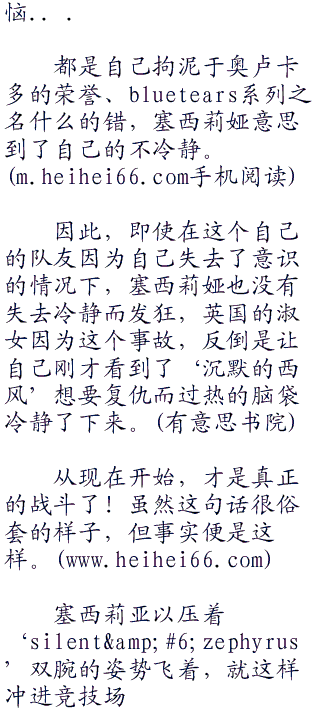 恼...
都是自己拘泥于奥卢卡
多的荣誉、bluetears系列之
名什么的错，塞西莉娅意思
到了自己的不冷静。
(m.heihei66.com手机阅读)
因此，即使在这个自己
的队友因为自己失去了意识
的情况下，塞西莉娅也没有
失去冷静而发狂，英国的淑
女因为这个事故，反倒是让
自己刚才看到了‘沉默的西
风’想要复仇而过热的脑袋
冷静了下来。(有意思书院)
从现在开始，才是真正
的战斗了！虽然这句话很俗
套的样子，但事实便是这
样。(www.heihei66.com)
塞西莉亚以压着
‘silent&amp;#6;zephyrus
’双腕的姿势飞着，就这样
冲进竞技场